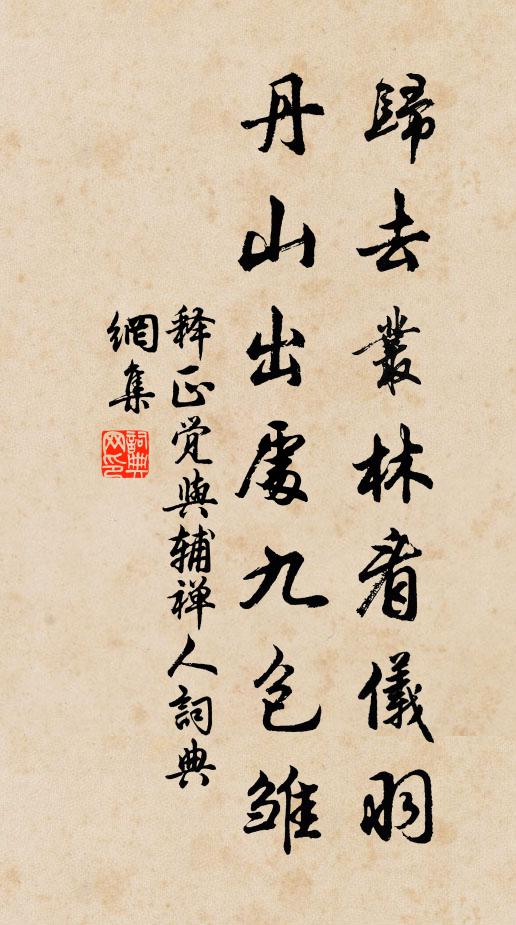 歸去叢林看儀羽
丹山出處九包雛
释正觉與辅禅人詞典
網集
詞典網印